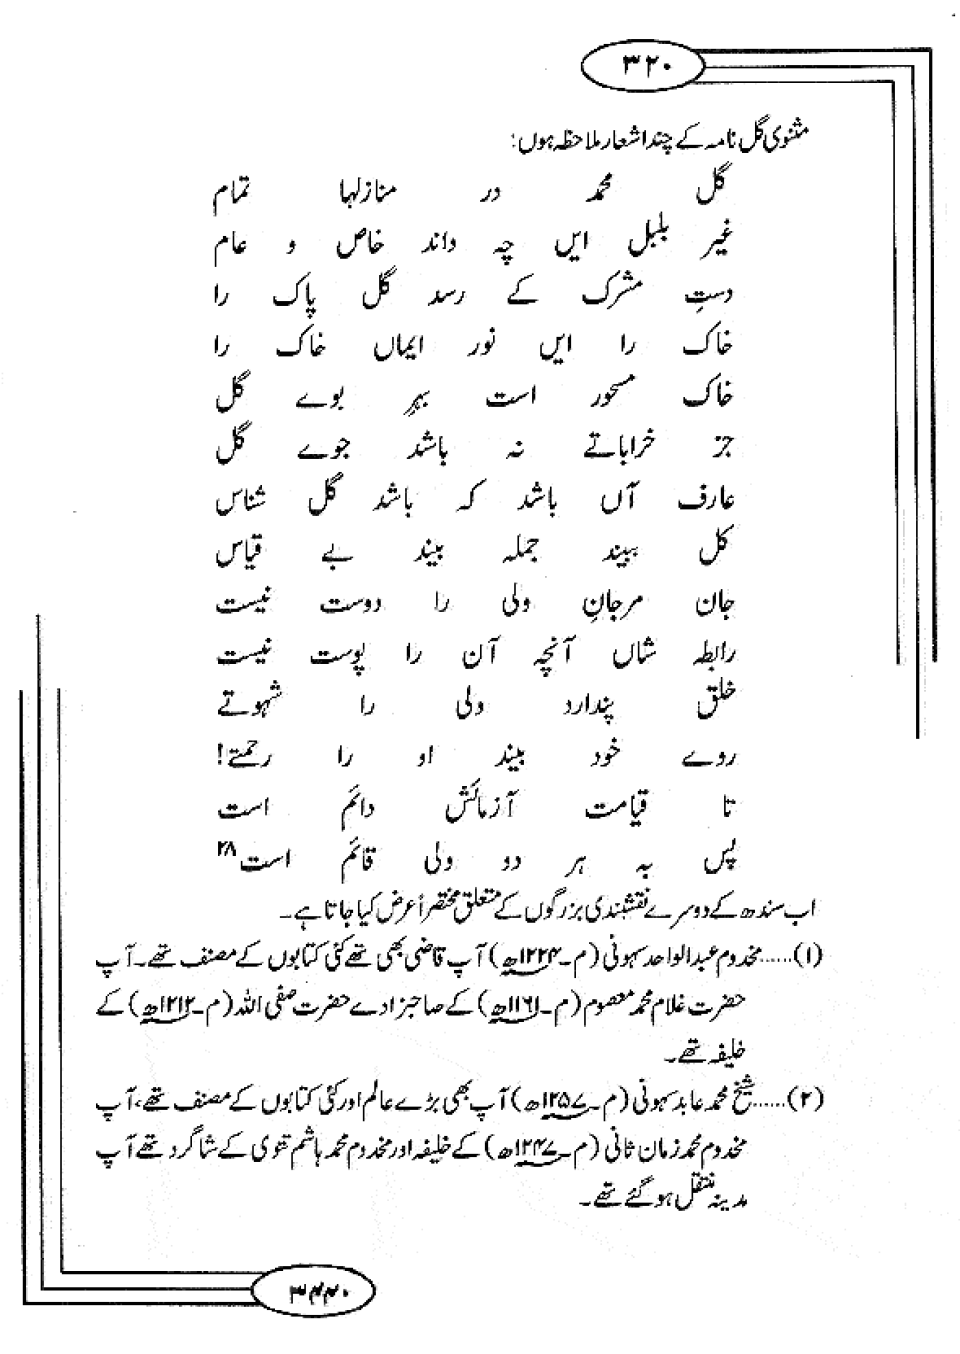 ۳۲۰
مثنوی گل نامہ کے چند اشعار ملاحظہ ہوں:
گل محمد در منازلہا تمام
غیر بلبل ایں چہ داند خاص و عام
دستِ مشرک کے رسد گل پاک را
خاک را ایں نور ایماں خاک را
خاک مسحور است بہرِ بوے گل
جز خراباتے نہ باشد جوے گل
عارف آں باشد کہ باشد گل شناس
کل ببیند جملہ بیند بے قیاس
جان مرجانِ ولی را دوست نیست
رابطہ شاں آنچہ آن را پوست نیست
خلق پندارد ولی را شہوتے
روے خود بیند او را رحمتے!
تا قیامت آزمائش دائم است
پس بہ ہر دو ولی قائم است۲۸
اب سندھ کے دوسرے نقشبندی بزرگوں کے متعلق مختصراً عرض کیا جاتا ہے۔
(۱)......مخدوم عبدالواحد سہونی (م۔۱۲۲۴ھ) آپ قاضی بھی تھے کئی کتابوں کے مصنف تھے۔ آپ
حضرت غلام محمد معصوم (م۔۱۱۶۱ھ) کے صاحبزادے حضرت صفی اللہ (م۔۱۲۱۲ھ) کے
خلیفہ تھے۔
(۲)......شیخ محمد عابد سہونی (م۔۱۲۵۷ھ) آپ بھی بڑے عالم اور کئی کتابوں کے مصنف تھے، آپ
مخدوم محمد زمان ثانی (م۔۱۲۴۷ھ) کے خلیفہ اور مخدوم محمد ہاشم تتوی کے شاگرد تھے آپ
مدینہ منتقل ہو گئے تھے۔